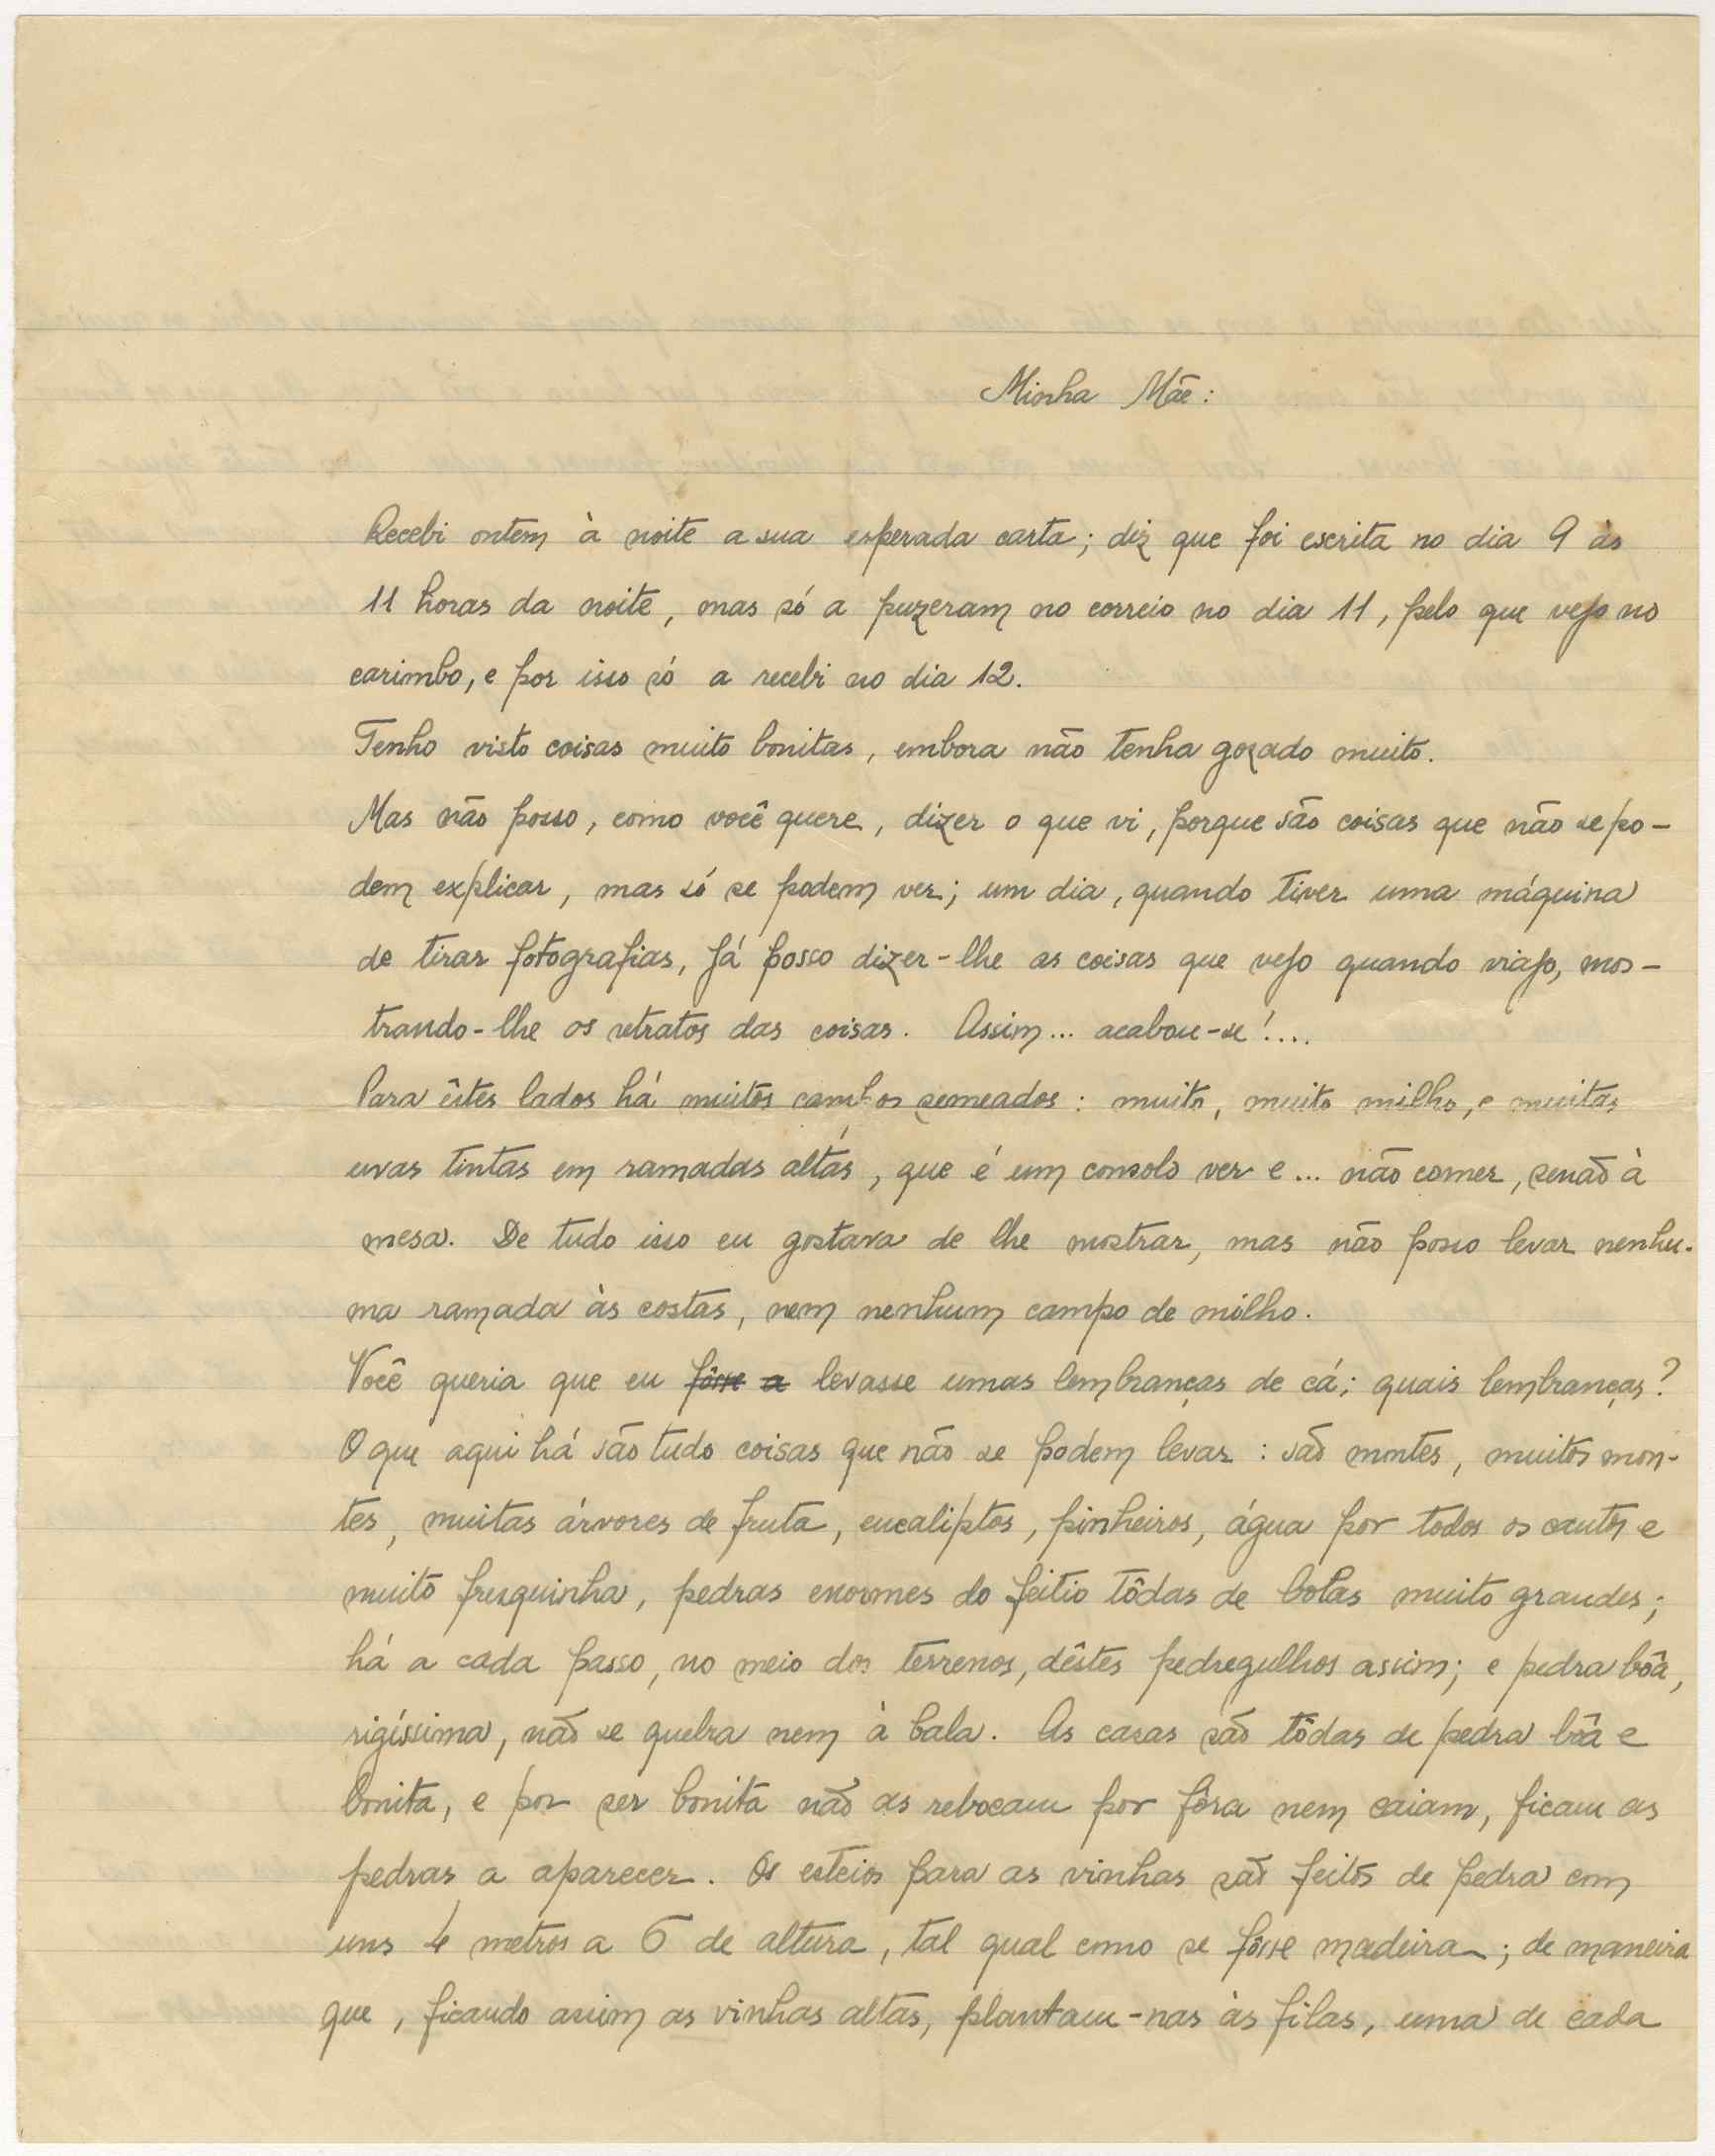 Minha Mãe:
Recebi ontem à noite a sua esperada carta; diz que foi escrita no dia 9 às
11 horas da noite, mas só a puzeram no correio no dia 11, pelo que vejo no
carimbo, e por isso só a recebi no dia 12.
Tenho visto coisas muito bonitas, embora não tenha gozado muito.
Mas não posso, como você quere, dizer o que vi, porque são coisas que não se po-
dem explicar, mas só se podem ver; um dia, quando tiver uma máquina
de tirar fotografias, já posso dizer-lhe as coisas que vejo quando viajo, mos-
trando-lhe os retratos das coisas. Assim... acabou-se!....
Para êstes lados há muitos campos semeados: muito, muito milho, e muitas
uvas tintas em ramadas altas, que é um consolo ver e... não comer, senão à
mesa. De tudo isso eu gostava de lhe mostrar, mas não posso levar nenhu-
ma ramada às costas, nem nenhum campo de milho.
Você queria que eu fôsse a levasse umas lembranças de cá; quais lembranças?
O que aqui há são tudo coisas que não se podem levar: são montes, muitos mon-
tes, muitas árvores de fruta, eucaliptos, pinheiros, água por todos os cantos e
muito fresquinha, pedras enormes do feitio tôdas de bolas muito grandes;
há a cada passo, no meio dos terrenos, dêstes pedregulhos assim; e pedra bôa,
rigíssima, não se quebra nem à bala. As casas são tôdas de pedra bôa e
bonita, e por ser bonita não as rebocam por fóra nem caiam, ficam as
pedras a aparecer. Os esteios para as vinhas são feitos de pedra com
uns 4 metros a 6 de altura, tal qual como se fôsse madeira; de maneira
que, ficando assim as vinhas altas, plantam-nas às filas, uma de cada